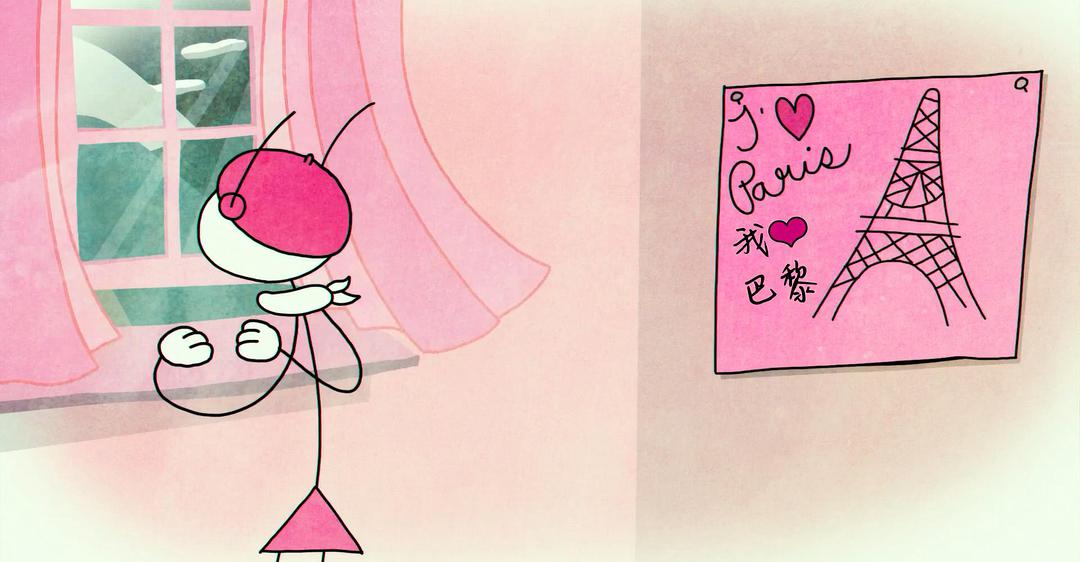 J'❤
Paris
我❤
巴黎